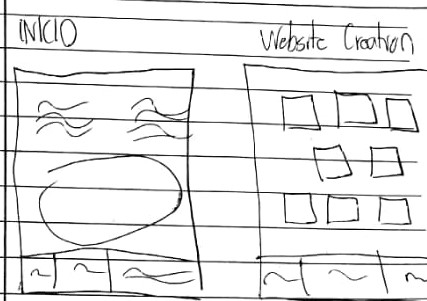 INICIO
Website Creation